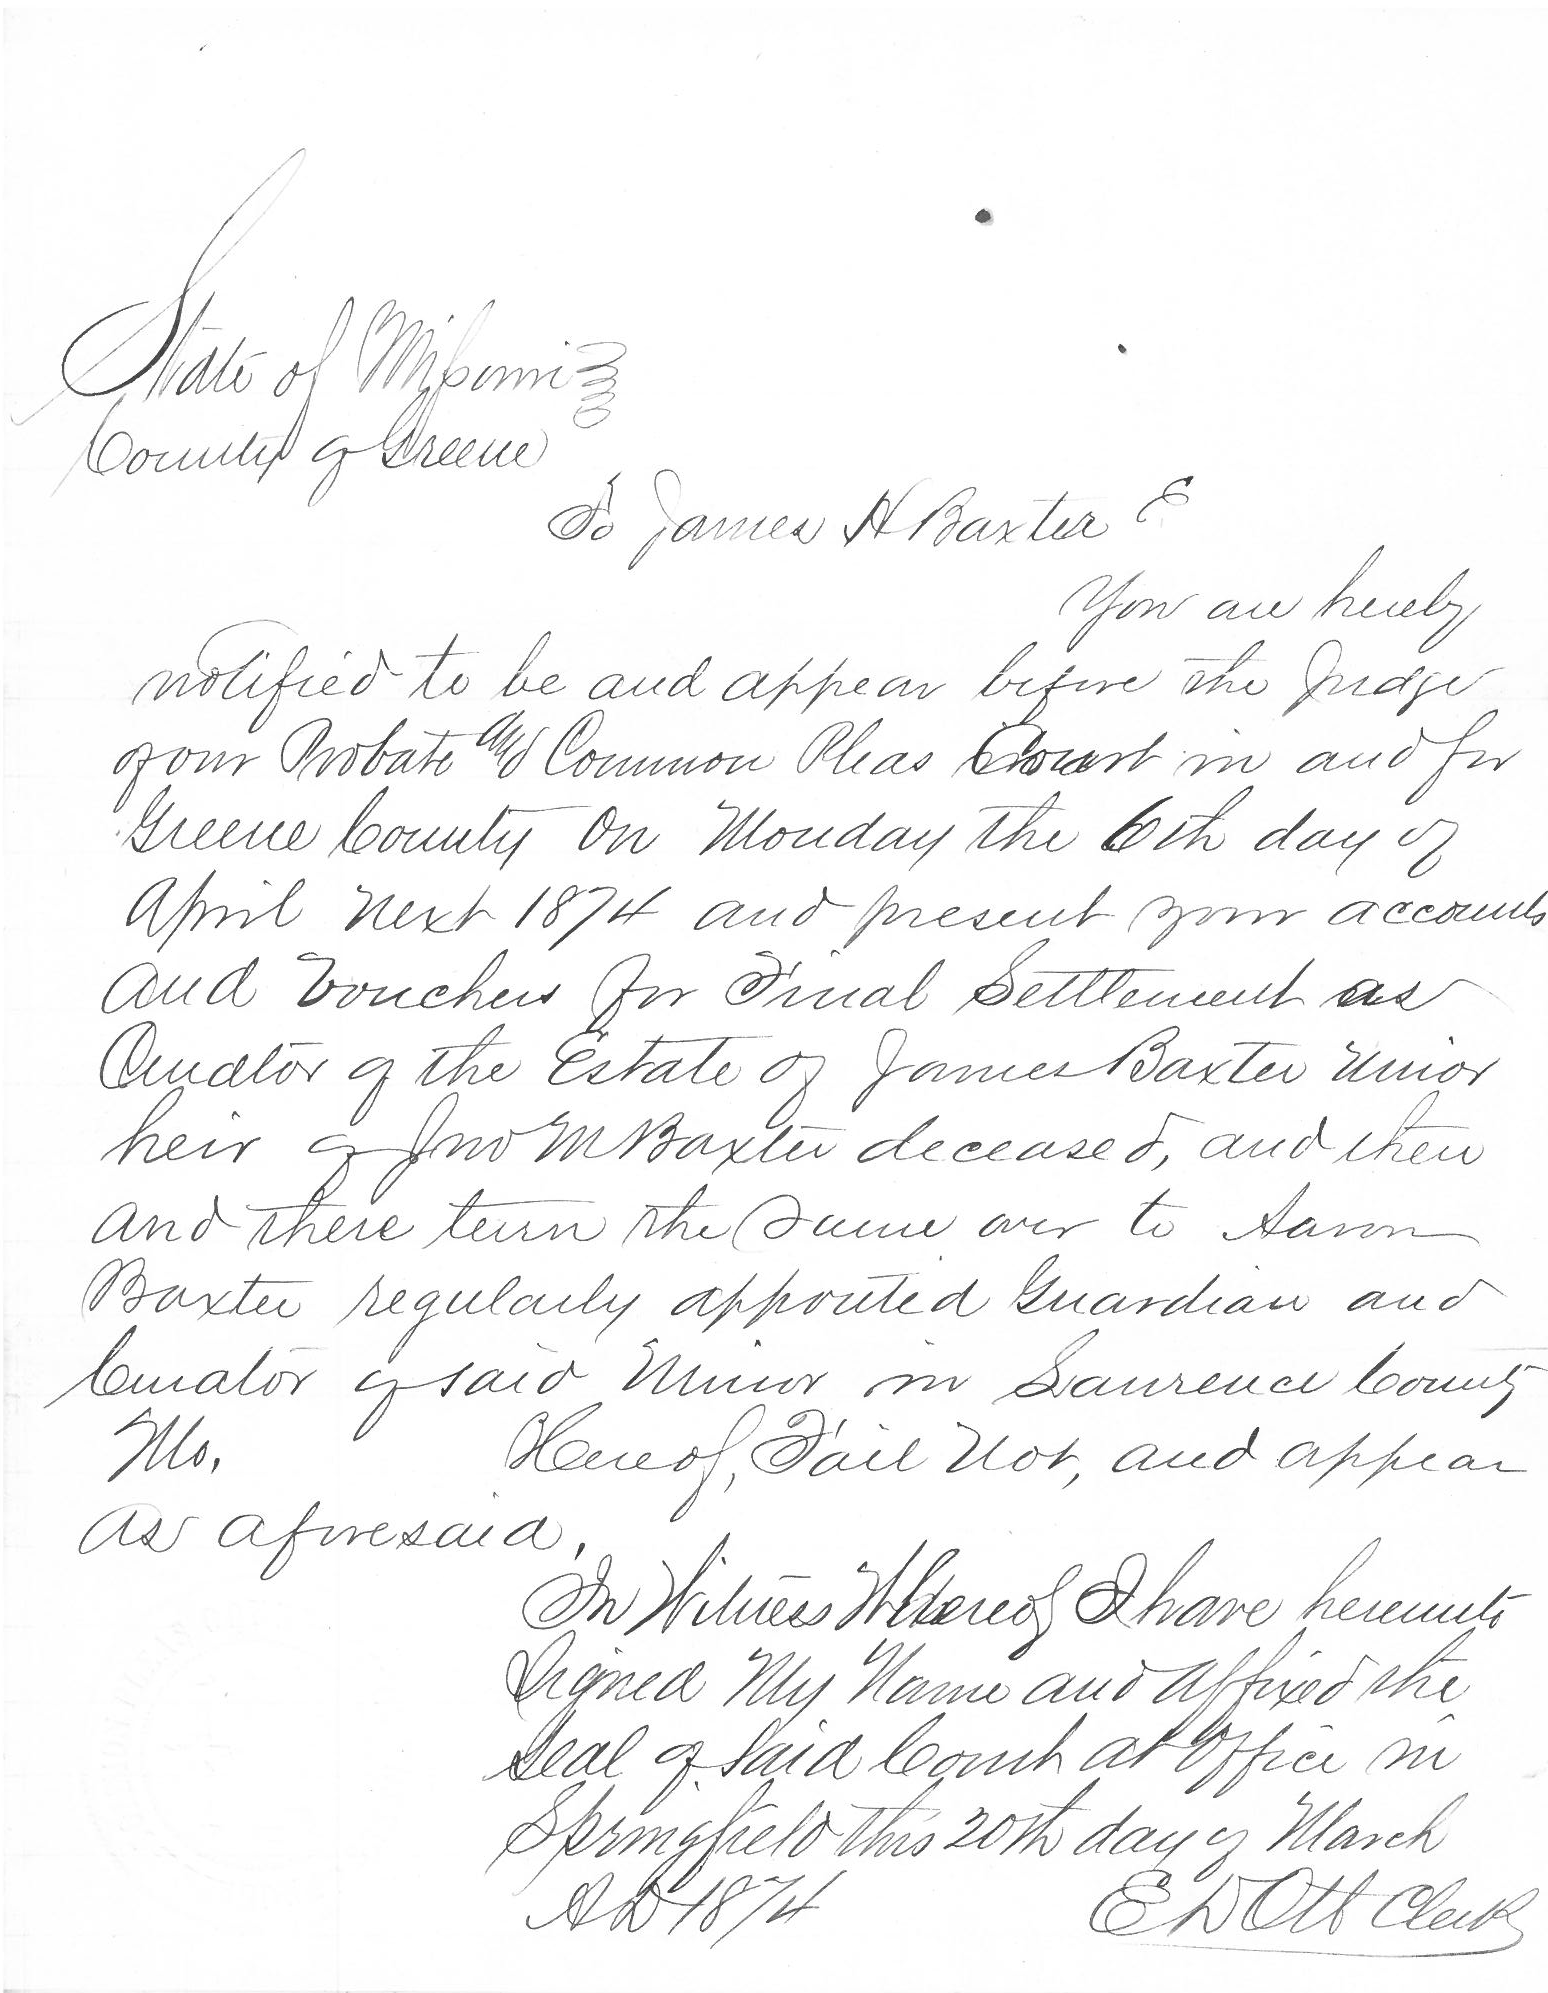 State of Missouri
County of Greene
To James H Baxter
You are hereby
notified to be and appear before the Judge
of our Probate and Common Pleas Court in and for
Greene County On Monday the 6th day of
April Next 1874 and present your accounts
and Vouchers for Final Settlement as
Curator of the Estate of James Baxter Minor
heir of Jno M Baxter deceased, and then
and there turn the Same over to Aaron
Baxter regularly appointed Guardian and
Curator of said Minor in Laurence County
Mo. Hereof, Fail Not, and appear
as aforesaid.
In Witness Whereof I have hereunto
Signed My Name and affixed the
Seal of Said Court at Office in
Springfield this 20th day of March
AD 1874 E D Ott Clerk